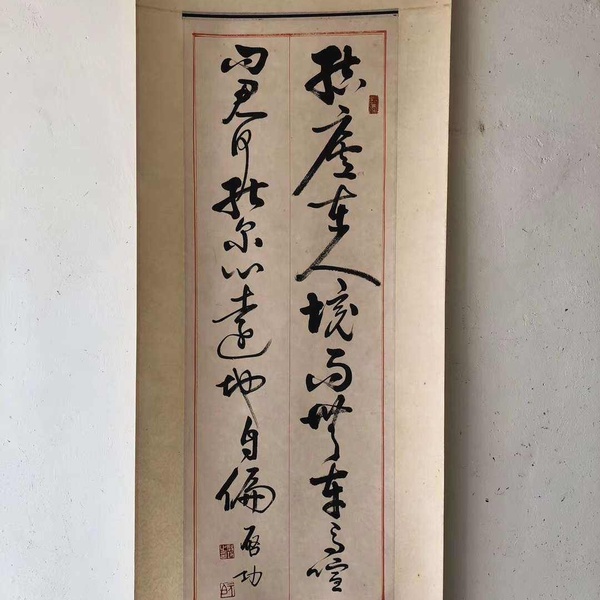 結廬在人境而無車馬喧
問君何能尔心遠地自偏
啟功